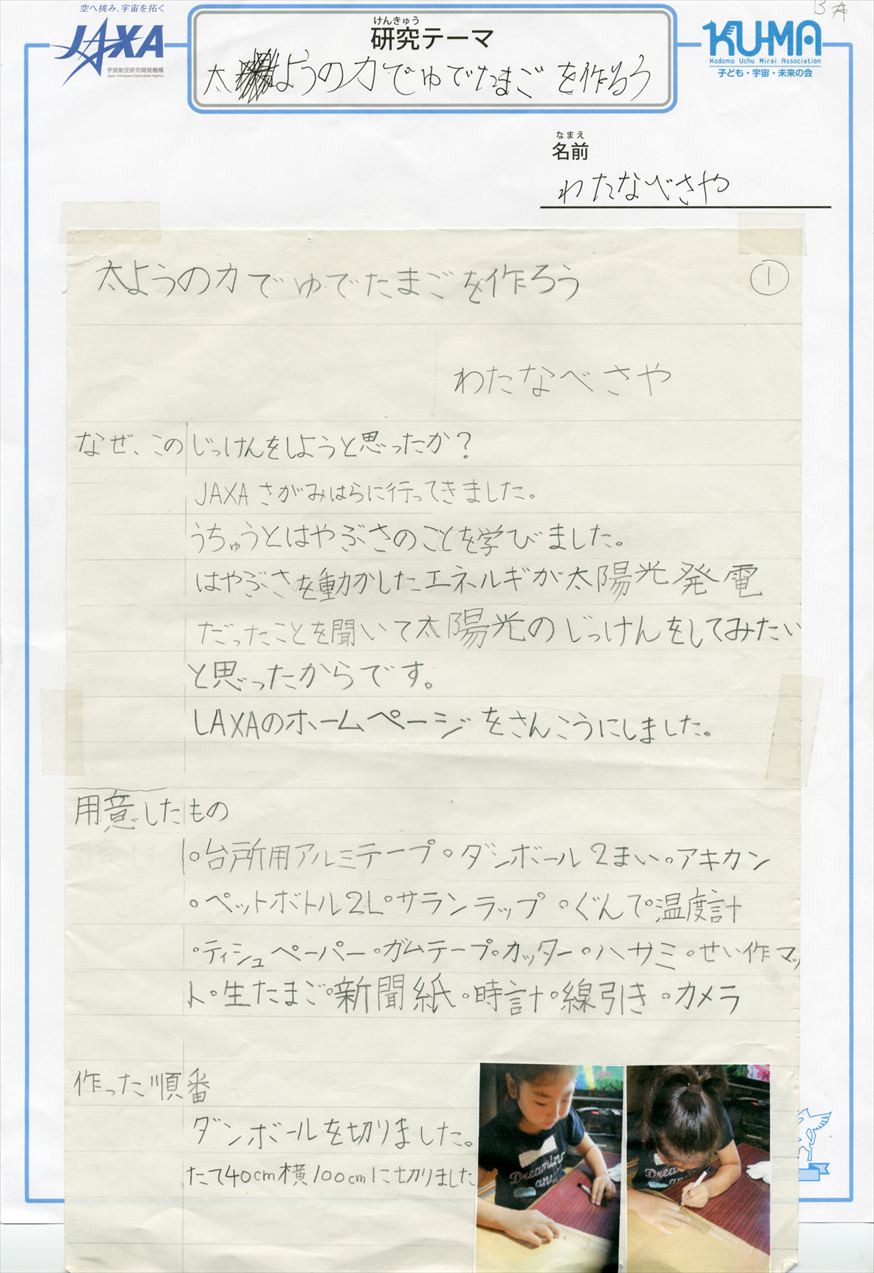 空へ挑み、宇宙を拓く
JAXA
宇宙航空研究開発機構
Japan Aerospace Exploration Agency
けんきゅう
研究テーマ
太ようの力でゆでたまごを作ろう
KU-MA
Kodomo Uchu Mirai Association
子ども・宇宙・未来の会
なまえ
名前
わたなべさや
太ようの力でゆでたまごを作ろう
①
わたなべさや
なぜ、このじっけんをしようと思ったか?
JAXAさがみはらに行ってきました。
うちゅうとはやぶさのことを学びました。
はやぶさを動かしたエネルギが太陽光発電
だったことを聞いて太陽光のじっけんをしてみたい
と思ったからです。
LAXAのホームページをさんこうにしました。
用意したもの
・台所用アルミテープ・ダンボール2まい・アキカン
・ペットボトル2L・サランラップ・ぐんて・温度計
・ティシュペーパー・ガムテープ・カッター・ハサミ・せい作マッ
ト・生たまご・新聞紙・時計・線引き・カメラ
作った順番
ダンボールを切りました。
たて40cm横100cmに切りました